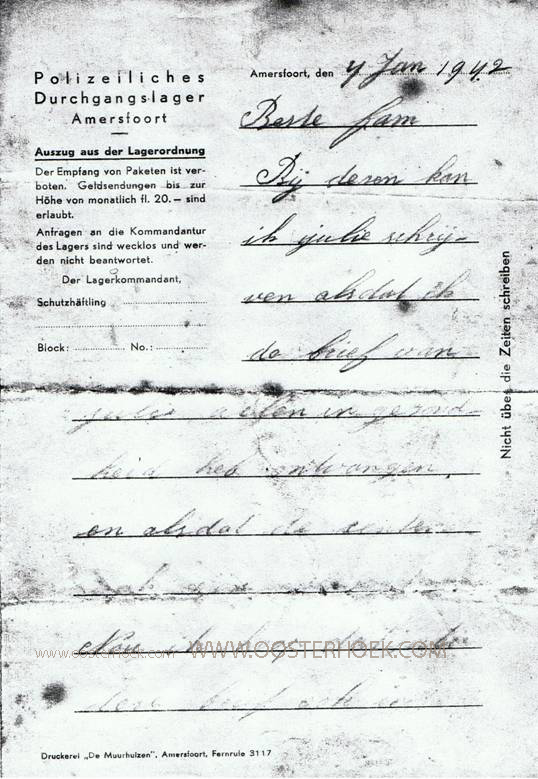 Polizeiliches
Durchgangslager
Amersfoort
Auszug aus der Lagerordnung
Der Empfang von Paketen ist ver-
boten. Geldsendungen bis zur
Höhe von monatlich fl. 20.— sind
erlaubt.
Anfragen an die Kommandantur
des Lagers sind wecklos und wer-
den nicht beantwortet.
Der Lagerkommandant,
Schutzhäftling
Block: No.:
Amersfoort, den 4 Jan 1942
Beste fam
Bij desen kan
ik julie schrij-
ven alsdat ik
de brief van
julie allen in gesond-
heid heb ontvangen.
en alsdat de
Nou
brief ook
Nicht übes die Zeiten schreiben
www.oosterhoek.com WWW.OOSTERHOEK.COM
Druckerei „De Muurhuizen", Amersfoort, Fernrufe 3117